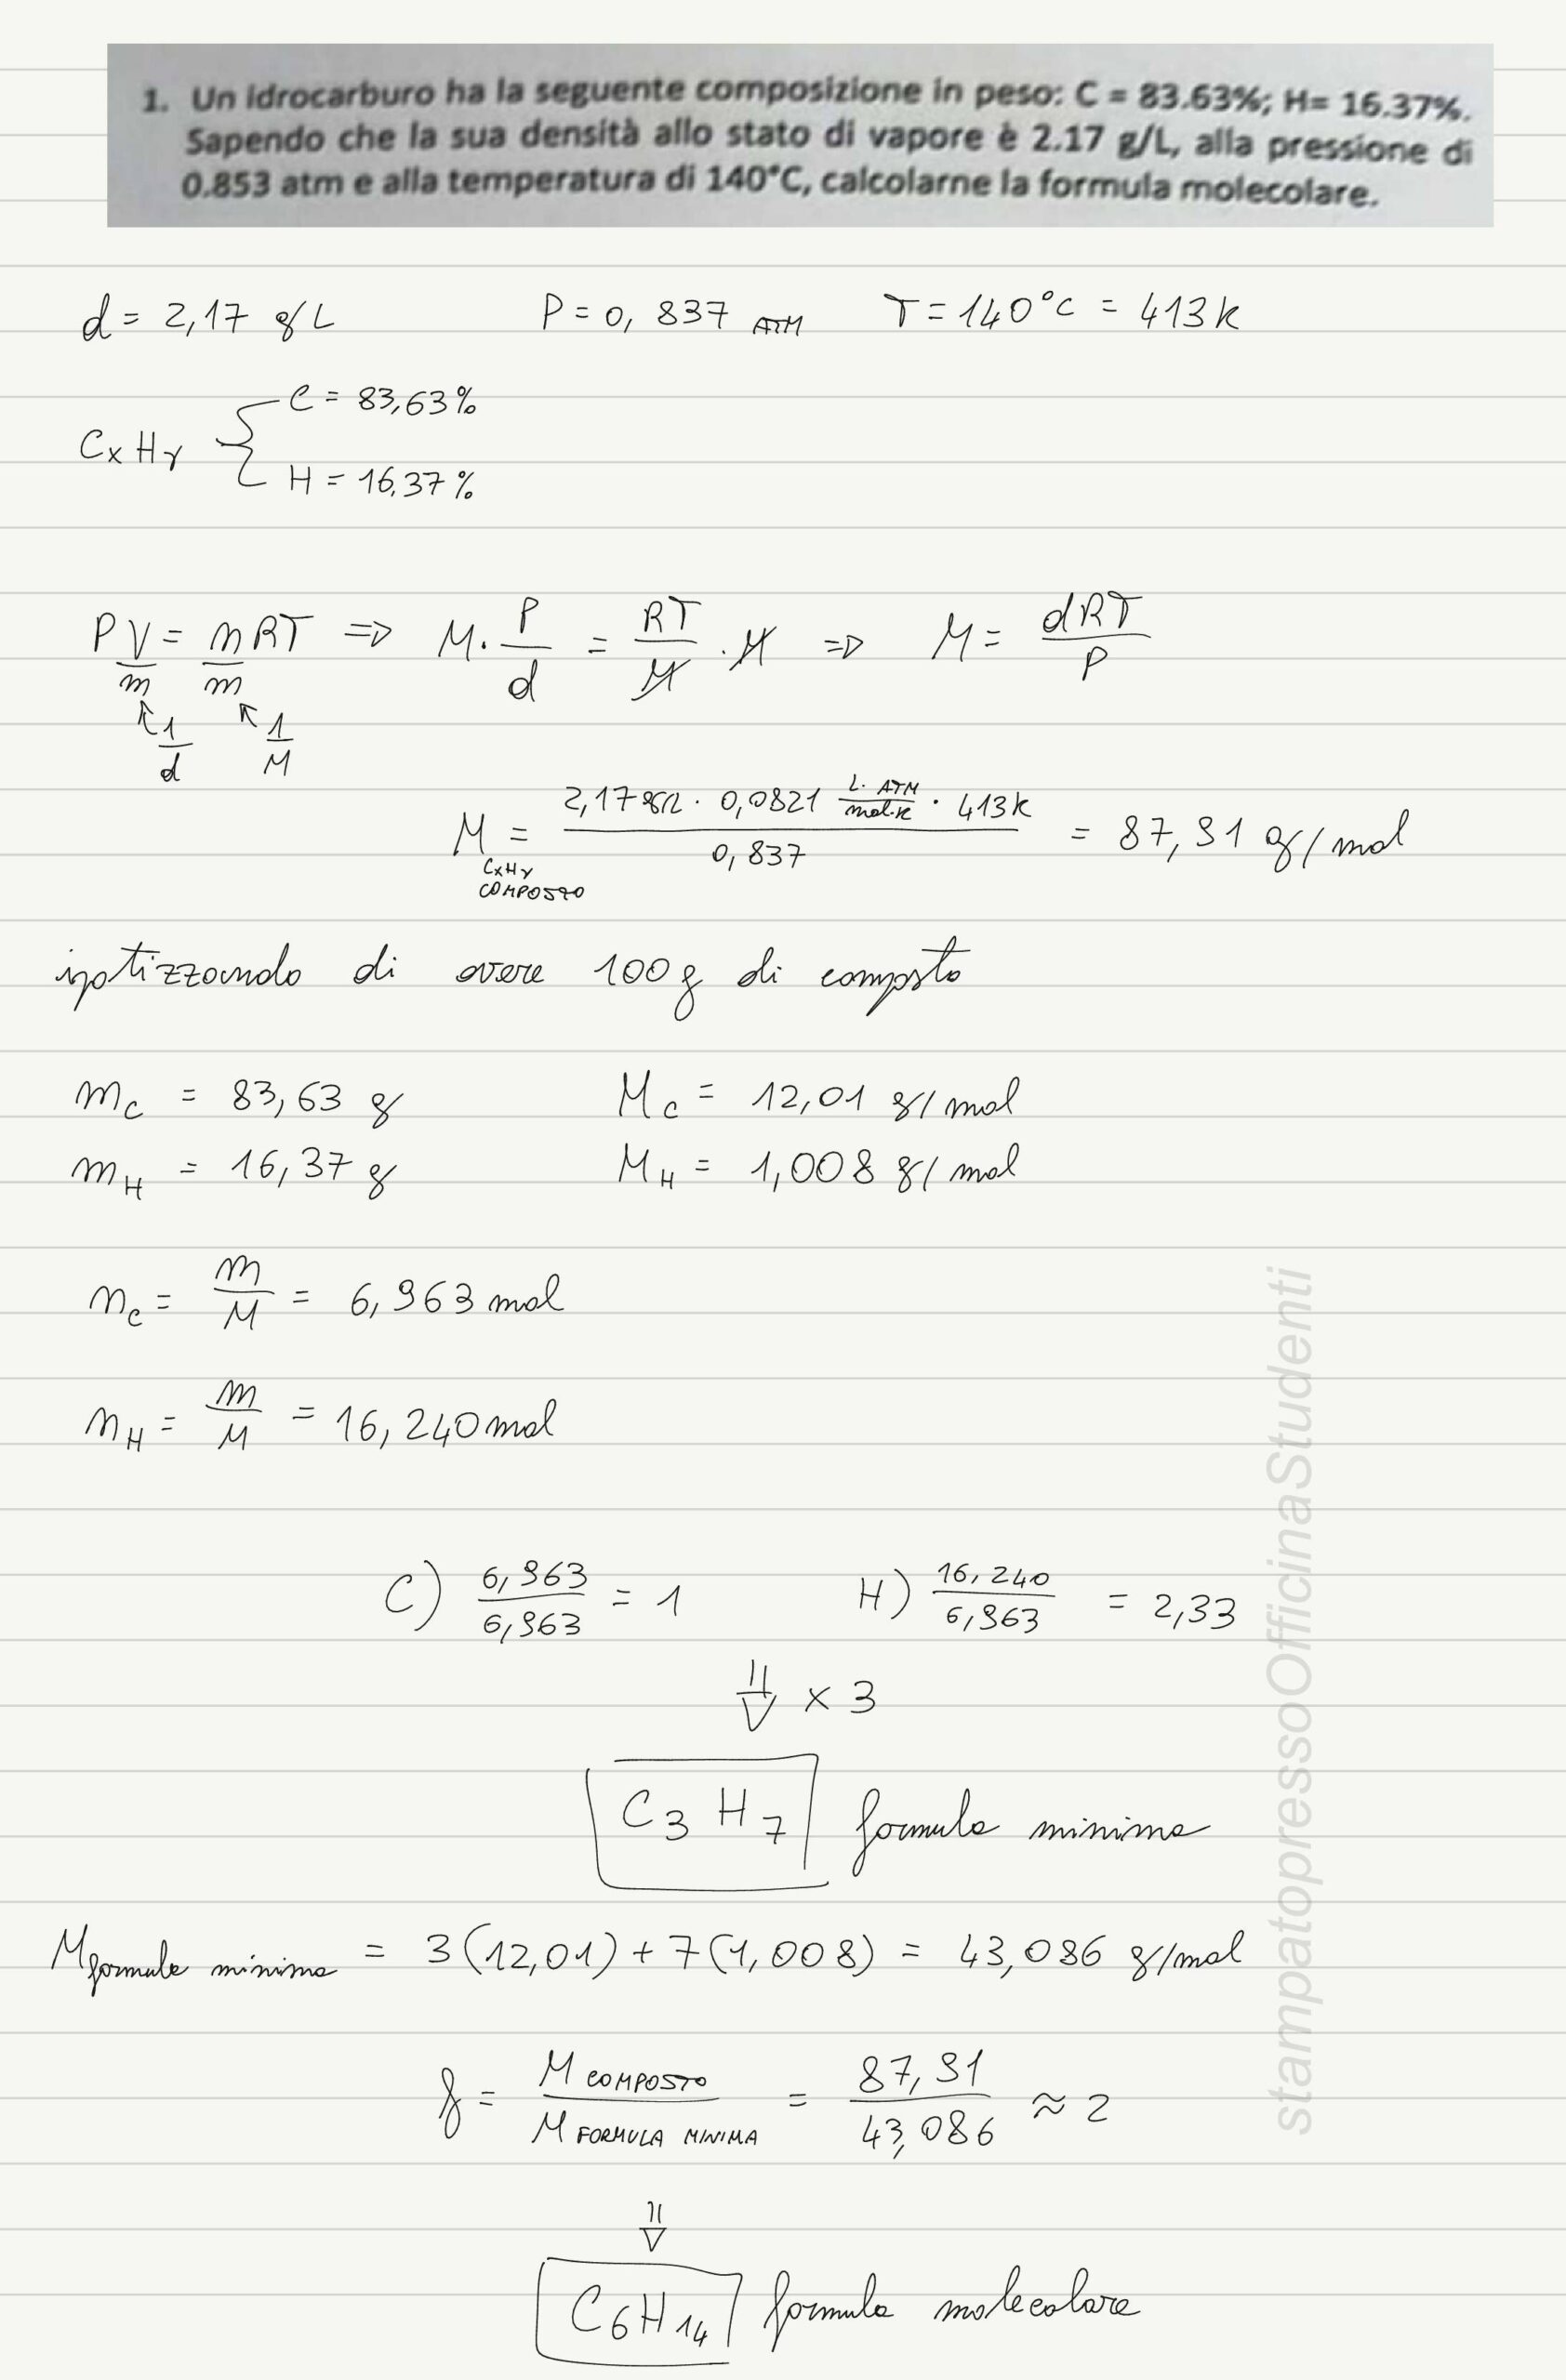 1. Un idrocarburo ha la seguente composizione in peso: C = 83.63%; H= 16.37%.
Sapendo che la sua densità allo stato di vapore è 2.17 g/L, alla pressione di
0.853 atm e alla temperatura di 140°C, calcolarne la formula molecolare.
d = 2,17 g/L P = 0,837 ATM T = 140°C = 413K
C = 83,63%
CxHy
H = 16,37%
PV/m = nRT/m => M · P/d = RT/M · M => M = dRT/P
1/d 1/M
M CxHy COMPOSTO = 2,17 g/L · 0,0821 L·ATM/mol·K · 413K / 0,837 = 87,91 g/mol
ipotizzando di avere 100g di composto
mC = 83,63 g MC = 12,01 g/mol
mH = 16,37 g MH = 1,008 g/mol
nC = m/M = 6,963 mol
nH = m/M = 16,240 mol
C) 6,963/6,963 = 1 H) 16,240/6,963 = 2,33
⇓ x 3
C3H7 formula minima
M formula minima = 3(12,01) + 7(1,008) = 43,086 g/mol
f = M COMPOSTO / M FORMULA MINIMA = 87,91/43,086 ≈ 2
⇓
C6H14 formula molecolare
stampatopressoOfficinaStudenti